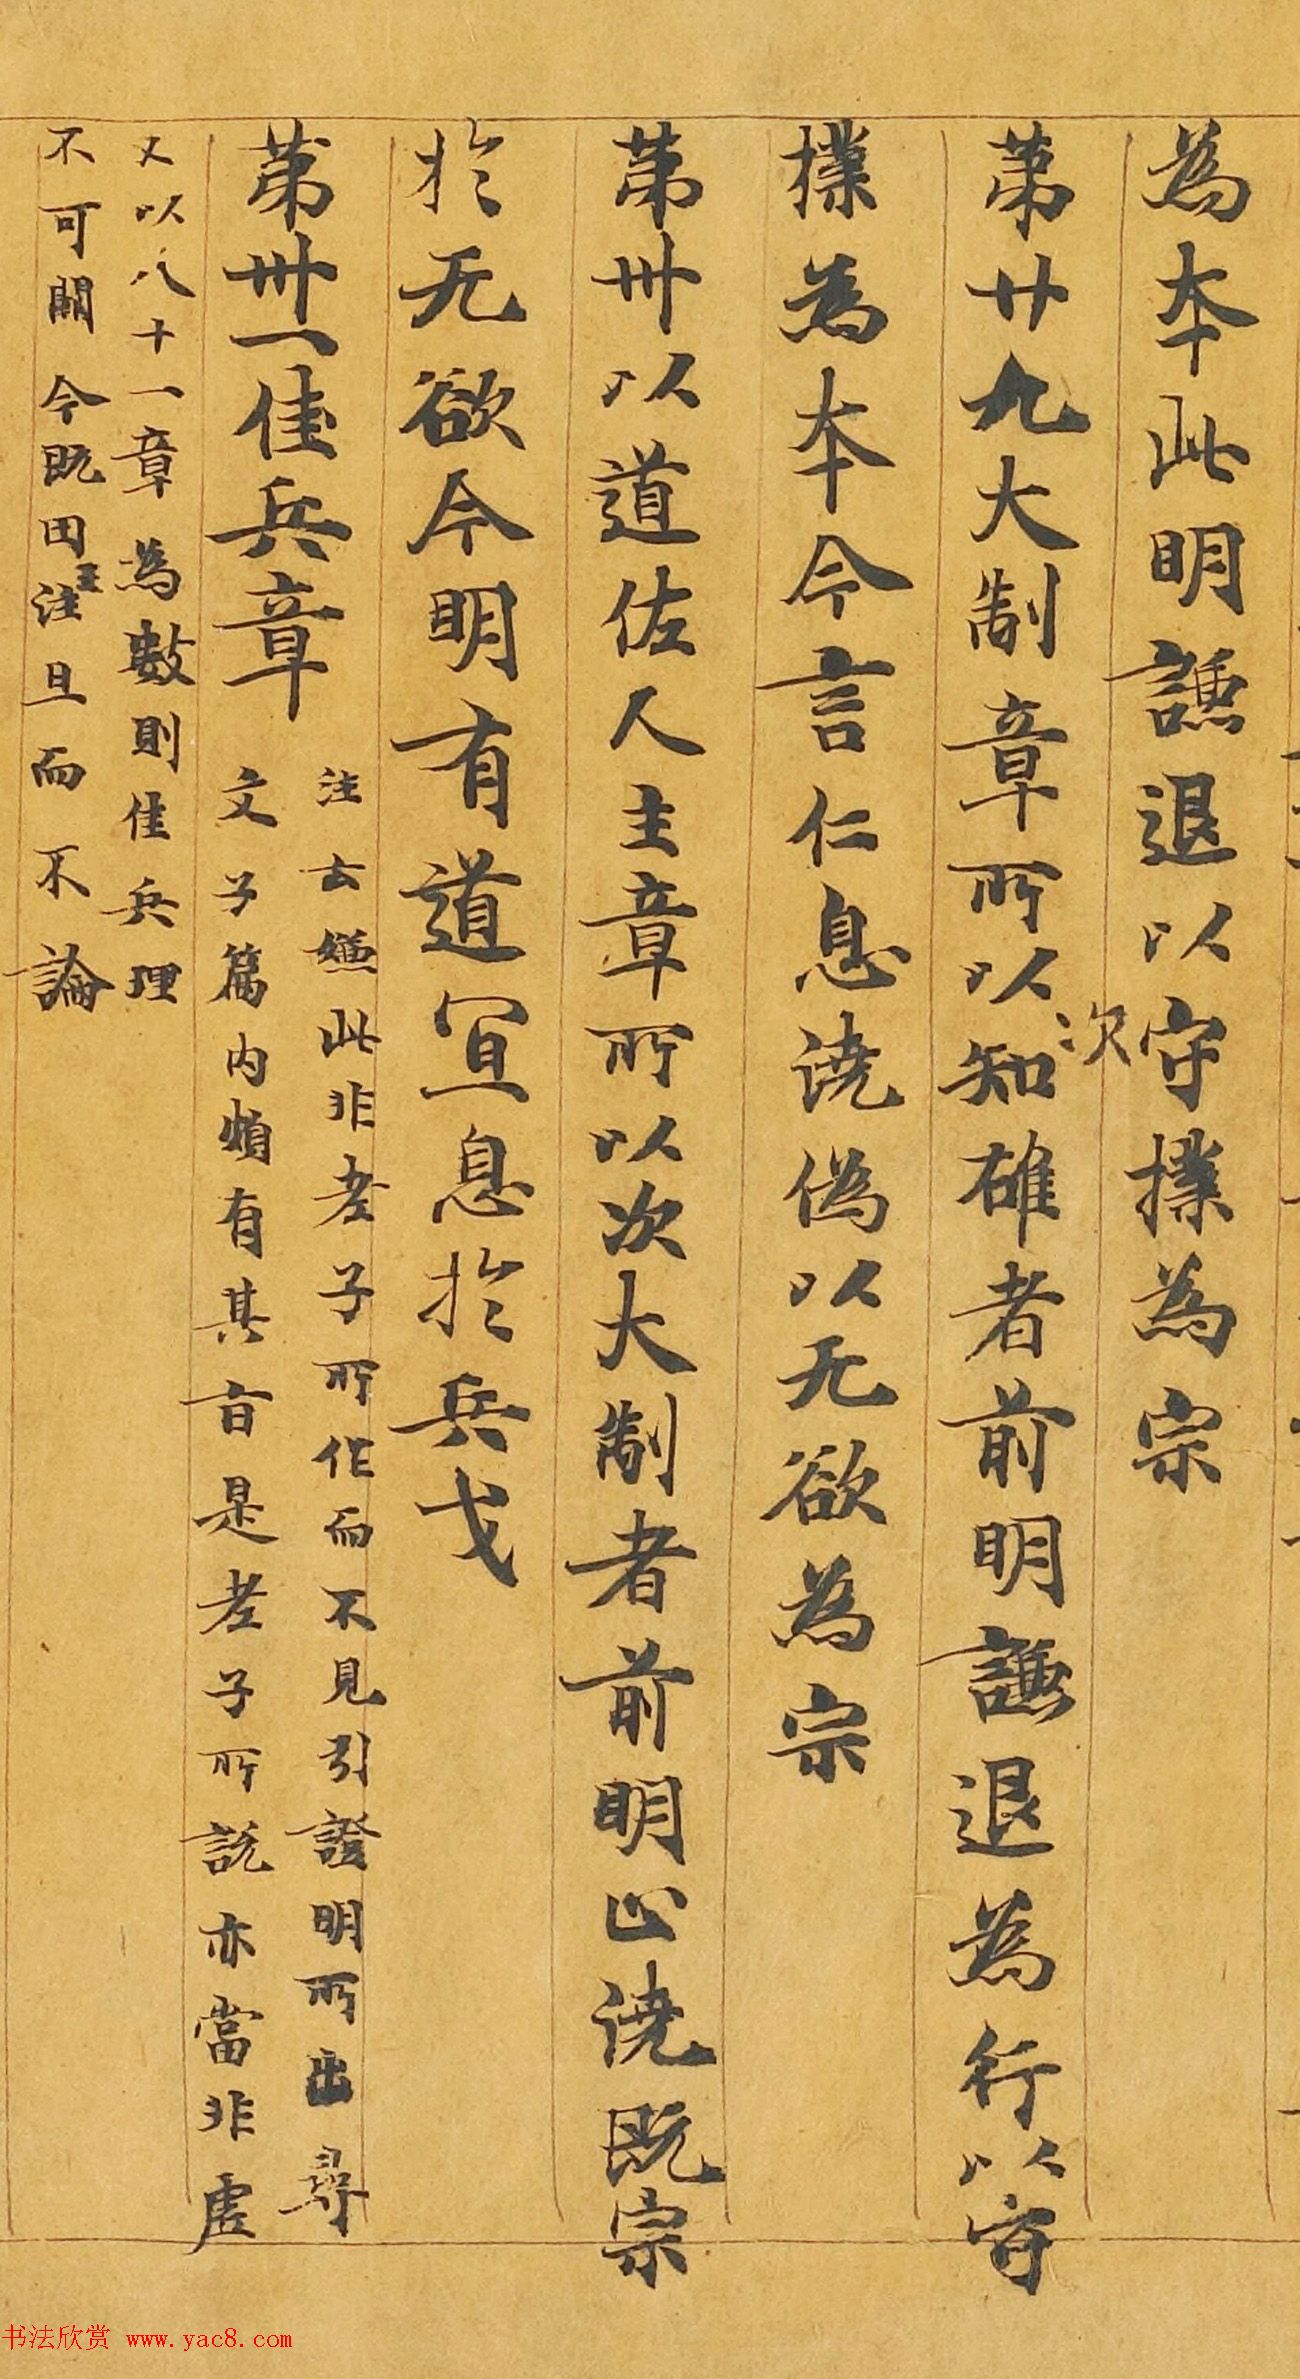 為本此明謙退以守樸為宗
第廿九大制章所以次知雄者前明謙退為行以守
樸為本今言仁息澆偽以无欲為宗
第卅以道佐人主章所以次大制者前明止澆既宗
於无欲今明有道宜息於兵戈
第卅一佳兵章
注云嫌此非老子所作而不見引證明所出尋
文子篇內頗有其旨是老子所說亦當非虛
又以八十一章為數則佳兵理
不可闕今既田王注且而不論
书法欣赏 www.yac8.com